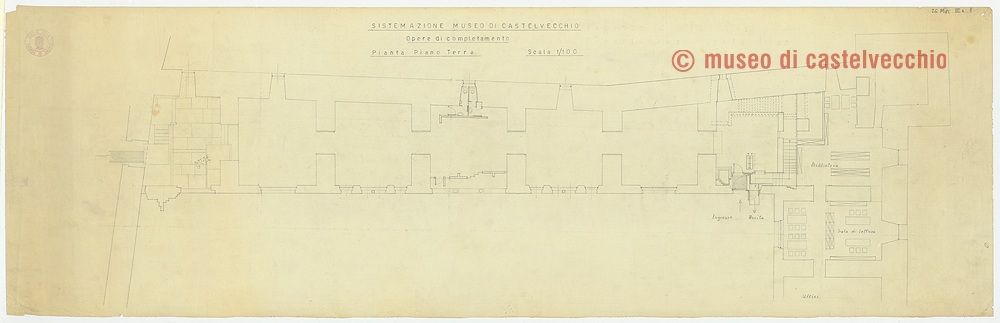 SISTEMAZIONE MUSEO DI CASTELVECCHIO
Opere di completamento
Pianta Piano Terra Scala 1/100
© museo di castelvecchio
Biblioteca
Ingresso Uscita
Sala di lettura
Uffici